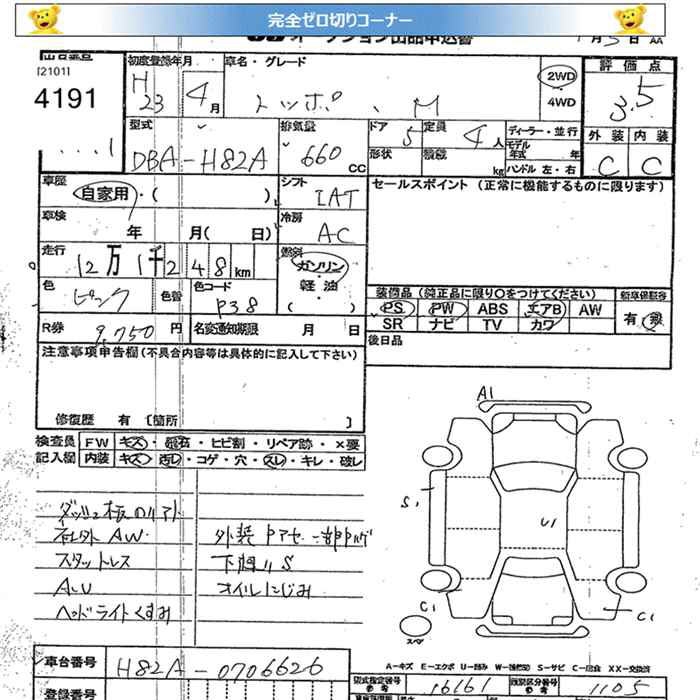 完全ゼロ切りコーナー
オークション出品申込書
月 5 日 AA
出品番号
[2101]
4191
初度登録年月
H 23 年 4 月
車名・グレード
トッポ 、 M
2WD
4WD
評価点
3.5
外装 内装
C C
型式
DBA-H82A
排気量
660 CC
ドア 5
定員 4 人
ディーラー・並行
モデル年式 年
形状
積載 kg
ハンドル 左・右
車歴
自家用・( )
シフト
IAT
セールスポイント (正常に機能するものに限ります)
車検
年 月( 日)
冷房
AC
走行
12万1千248 km
燃料
ガソリン・軽油
( )
色
ピンク
色替
色コード
P38
装備品 (純正品に限り○をつけてください)
PS PW ABS エアB AW
SR ナビ TV カワ
新車保証書
有・無
R券 9,750 円
名変通知期限 月 日
後日品
注意事項申告欄 (不具合内容等は具体的に記入して下さい)
修復歴 有 [箇所 ]
検査員記入欄
FW キズ・飛石・ヒビ割・リペア跡・×要
内装 キズ・汚レ・コゲ・穴・スレ・キレ・破レ
社外AW
スタットレス
ヘッドライトくすみ
下廻りS
オイルにじみ
A1
S1
U1
C1
C1
スペア
A-キズ E-エクボ U-凹み W-補修跡 S-サビ C-腐食 XX-交換済
車台番号
H82A-0706626
型式指定番号
参考
16161
類別区分番号
参考
1105
登録番号